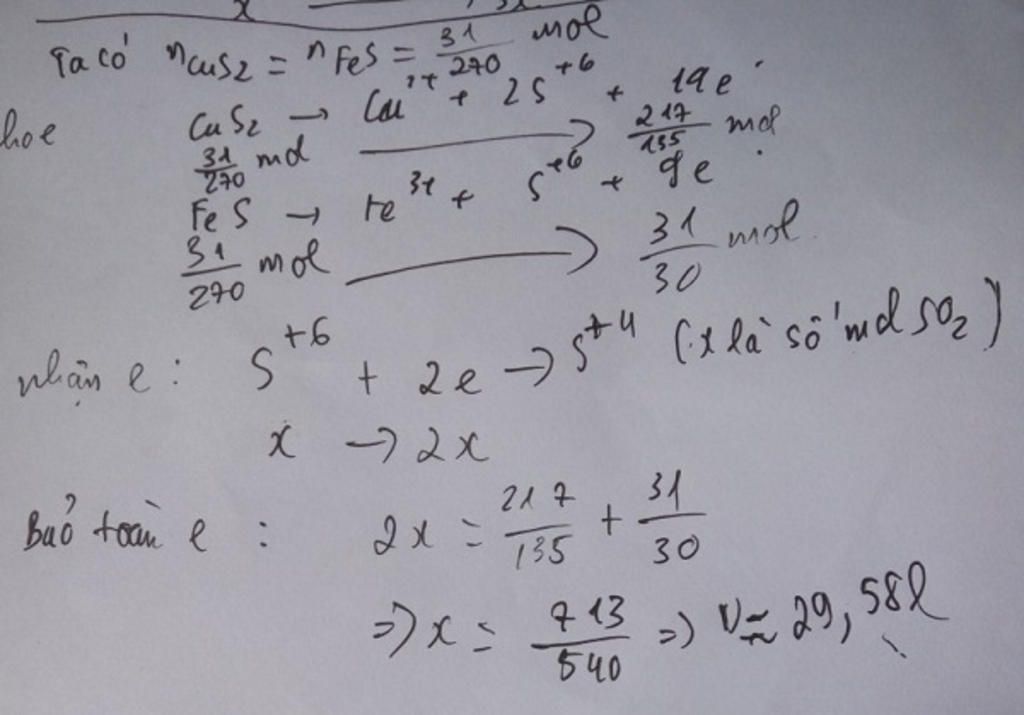 Ta có nCuS2 = nFeS = 31/270 mol
CuS2 → Cu²⁺ + 2S⁺⁶ + 14e
31/270 mol → 217/135 mol
FeS → Fe³⁺ + S⁺⁶ + 9e
31/270 mol → 31/30 mol
nhận e : S⁺⁶ + 2e → S⁺⁴ (x là số mol SO2)
x → 2x
Bảo toàn e : 2x = 217/135 + 31/30
=> x = 713/540 => V ≈ 29,58l